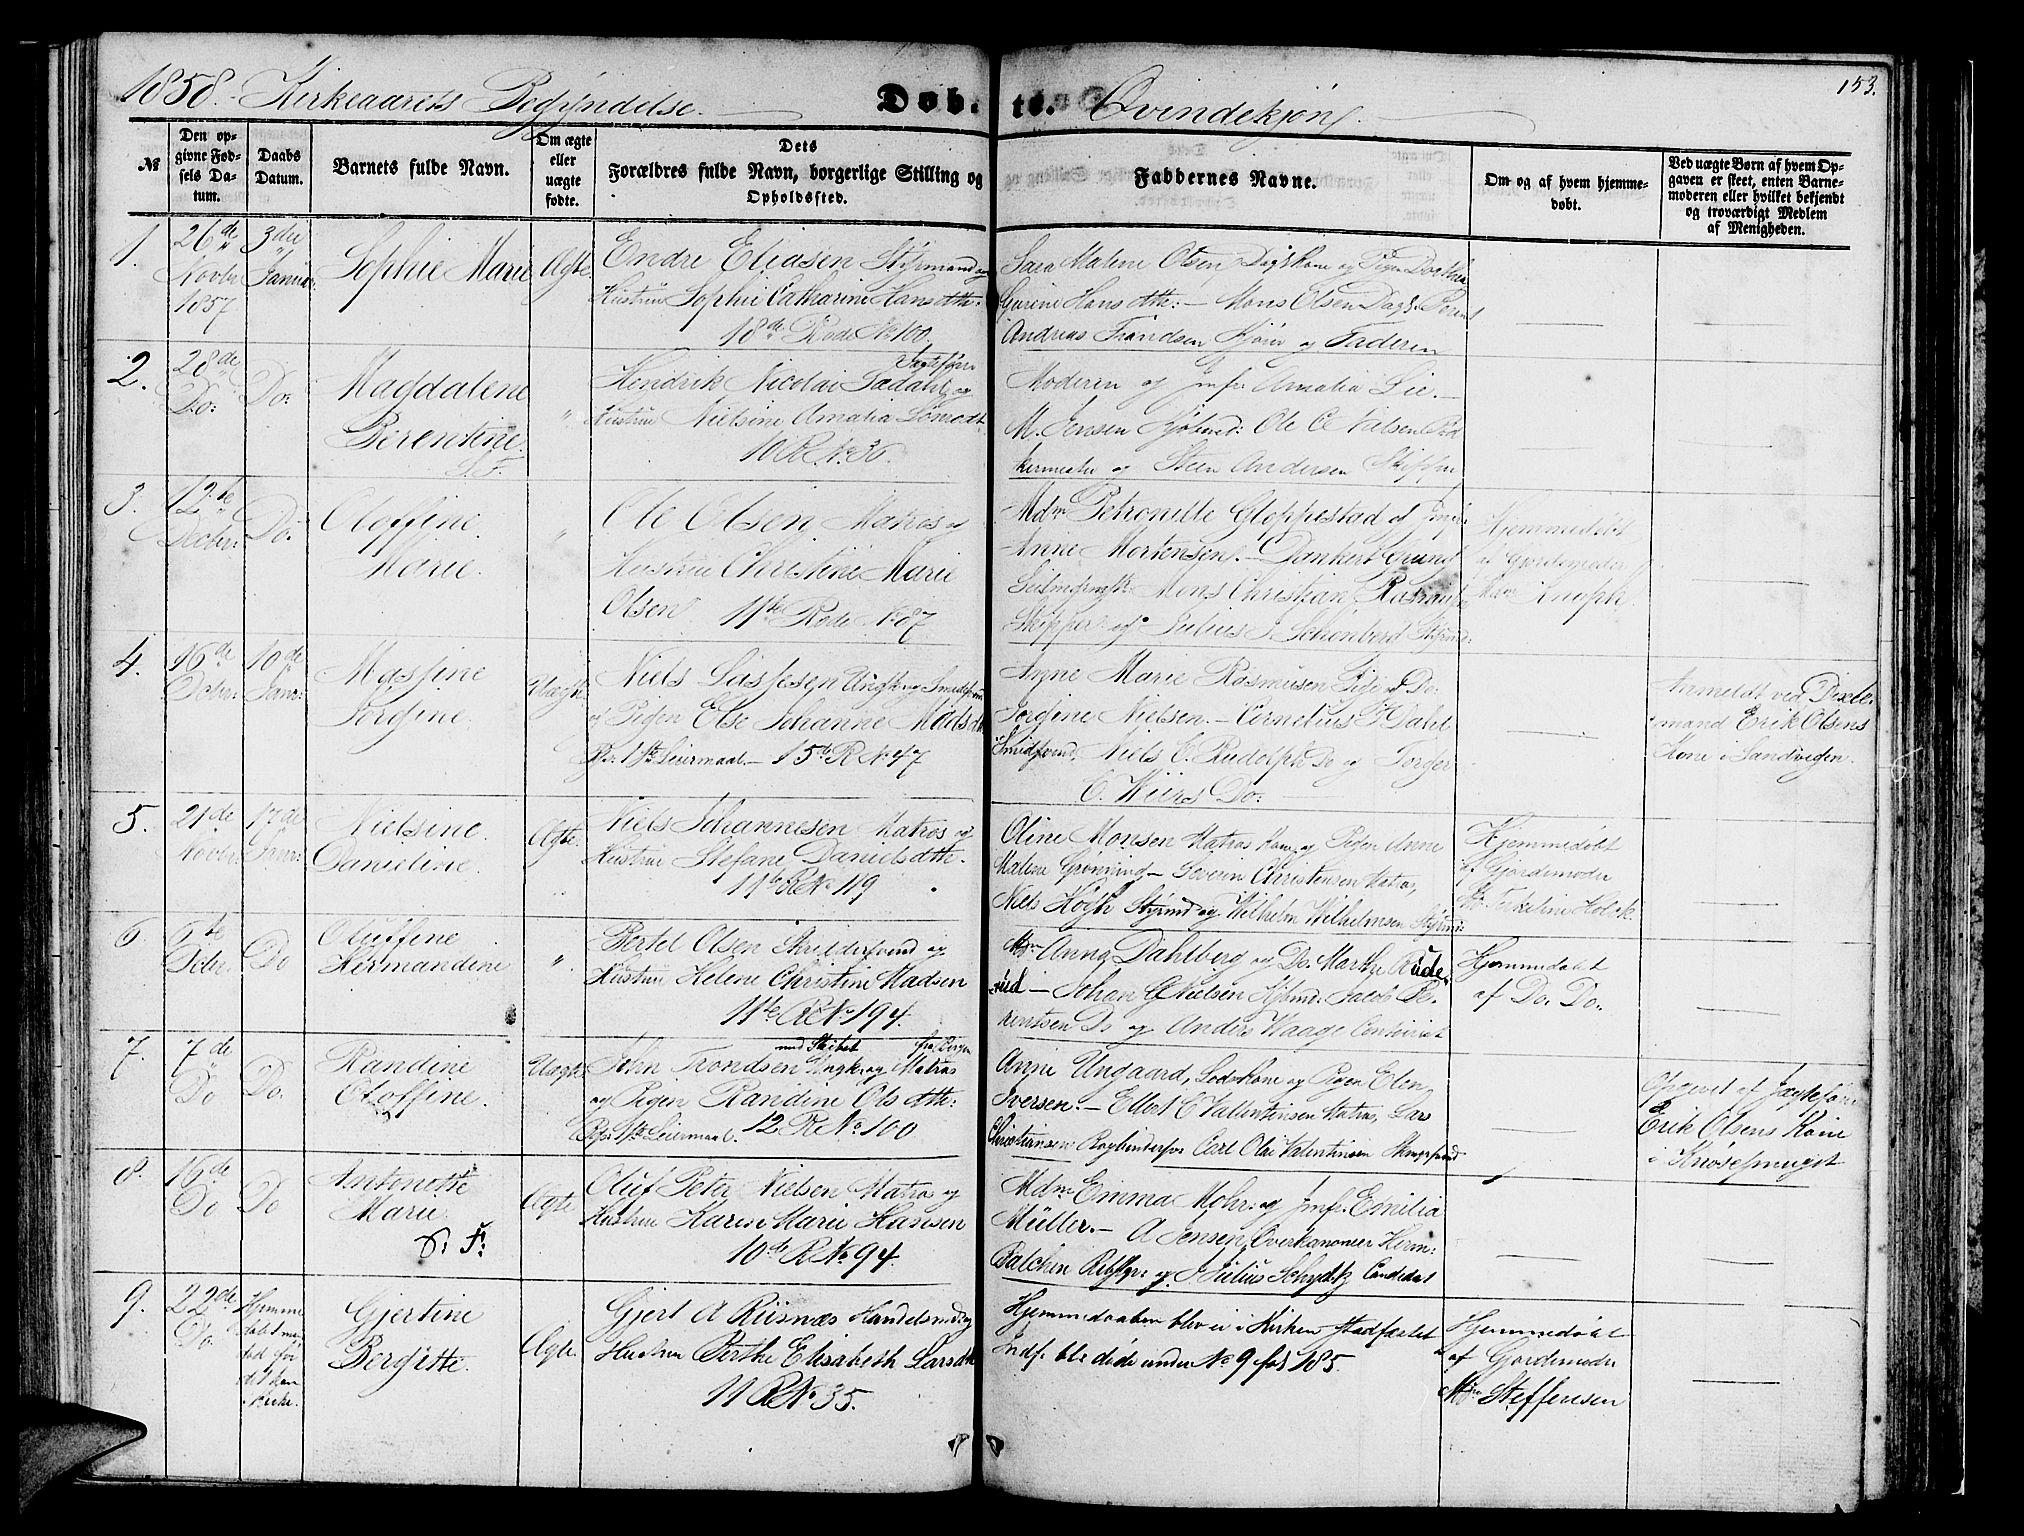 1858. Kirkeaarets Begyndelse.
Døbte. Qvindekjøn.
153.
№
Den opgivne Fødsels Datum.
Daabs Datum.
Barnets fulde Navn.
Om ægte eller uægte fødte.
Dets Forældres fulde Navn, borgerlige Stilling og Opholdssted.
Faddernes Navne.
Om og af hvem hjemmedøbt.
Ved uægte Børn af hvem Opgaven er skeet, enten Barnemoderen eller hvilket bekjendt og troværdigt Medlem af Menigheden.
1. 26de Novbr 1857
3die Januar
Sophie Marie
Ægte
Endre Eliasen Styrmand og
Hustrue Sophie Catharine Hansdttr:
18de Rode No 100
Sara Malene Olsen, Dagsk
Gurine Hansdttr: – Mons Olsen Dags. Berent
Andreas Trondsen og Faderen
2. 28de Do:
Do:
Magdalene
Berentine.
"
Hendrik Nicolai
Hustrue Nielsine Amalia
10 R. No 36.
Moderen og Jmfr Amalia Lie.
M. Jensen Ole C Nilsen
og Steen Andersen Skipper
3. 12te Decbr:
Do.
Oloffine
Marie.
"
Ole Olsen Matros og
Hustrue Christine Marie
Olsen 11te Rode No 87
Mdm Petronille Gloppestad et Jmfr:
Anne Mortensen. – Dankert Grung
Mons Christian
Skipper og Julius
Hjemmedøbt
af Gjordemoder
Mdm
4. 16de Decbr:
10de Janr:
Massine
Jørgine.
Uægte
Niels Lassesen Ungk. og Smedsvend
og Pigen Else Johanne Madsdtr
Bgs: 1ste Leiermaal – 15de R No 47
Anne Marie Rasmusen Pige et Do.
Jørgine Nielsen. – Cornelius F Dahl
Smedsvend, Niels C. Rudolph Do og Torger
C. Wiers Do:
Anmeldt ved
mand Erik Olsens
Kone i Sandvigen.
5. 21de Novbr
17de Janr:
Nielsine.
Danieline
Ægte.
Niels Johannesen Matros og
Hustrue Stefane Danielsdttr.
11te R No 119
Oline Monsen Matros Kone, og Pigen Anne
Malene Grønvind – Severin Christensen Matros,
Niels Høgh Styrmd og Wilhelm Wilhelmsen Styrmd:
Hjemmedøbt
af Gjordemoder
Holck
6. 5te Decbr.
Do
Oluffine
Hermandine
".
Bertel Olsen Skrædersvend og
Hustrue Helene Christine Madsen
11te R No 194.
Mdm Anna Dahlberg og Do. Marthe Rude
rud – Johan G Nielsen Jacob Be-
rentsen Do og Anders Waage
Hjemmedøbt
af Do. Do.
7. 7de Do
Do.
Randine
Oloffine.
Uægte
med Skibet fra Bergen
John Trondsen Ungk. og Matros
og Pigen Randine Olsdttr:
1ste Leiermaal. 12 R No 100
Anne Ungaard, Lodskone og Pigen Elen
Iversen. – Ellert C Vallentinsen Matros, Lars
Christiansen Bogbindersv Carl Olai Valentinsen
Opgivet af Jægtefører
Erik Olsens Kone
i
8. 16de Do
Do
Antonette
Marie
S: F:
Ægte
Oluf Peter Nielsen Matros og
Hustrue Karen Marie Hansen
10de R No 94.
Mdm Emma Mohr. og Jmfr. Emilia
Müller. – A Jensen, Overkanoneer Herm:
og J Julius Schydtz Candidat
9. 22de Do.
Hjemme
døbt
Kirke.
Gjertine
Bergitte.
Ægte.
Gjert A Riisnæs Handelsmd og
Hustrue Berthe Elisabeth Larsdtr
11 R No 35.
Hjemmedaaben blev ei i Kirken stadfæstet
Indf. bl: døde under No 9 fol 185.
Hjemmedøbt
af Gjordemoder
Mdm Steffensen